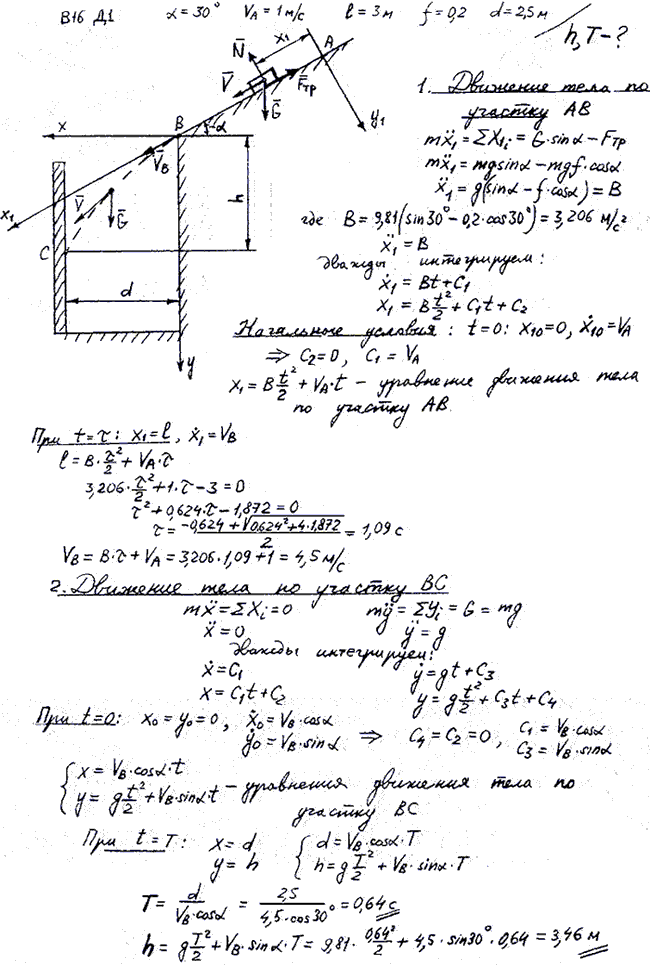 В16 Д1 α=30° V_A=1 м/с l=3 м f=0,2 d=2,5 м
h, T-?
x₁ A
N̄
V̄ F̄тр
Ḡ y₁
x B α
V̄_B
V̄ h
x₁ Ḡ
C
d
y
1. Движение тела по
участку АВ
mẍ₁=ΣX₁ᵢ=G·sinα-Fтр
mẍ₁=mgsinα-mgf·cosα
ẍ₁=g(sinα-f·cosα)=B
где B=9,81(sin30°-0,2·cos30°)=3,206 м/с²
ẍ₁=B
дважды интегрируем:
ẋ₁=Bt+C₁
x₁=B t²/2+C₁t+C₂
Начальные условия: t=0: x₁₀=0, ẋ₁₀=V_A
⇒ C₂=0, C₁=V_A
x₁=B t²/2+V_A·t - уравнение движения тела
по участку АВ.
При t=τ: x₁=l, ẋ₁=V_B
l=B·τ²/2+V_A·τ
3,206·τ²/2+1·τ-3=0
τ²+0,624·τ-1,872=0
τ=(-0,624+√(0,624²+4·1,872))/2=1,09 с
V_B=B·τ+V_A=3,206·1,09+1=4,5 м/с
2. Движение тела по участку ВС
mẍ=ΣXᵢ=0 mÿ=ΣYᵢ=G=mg
ẍ=0 ÿ=g
дважды интегрируем:
ẋ=C₁ ẏ=gt+C₃
x=C₁t+C₂ y=g t²/2+C₃t+C₄
При t=0: x₀=y₀=0, ẋ₀=V_B·cosα ⇒ C₄=C₂=0, C₁=V_B·cosα
ẏ₀=V_B·sinα C₃=V_B·sinα
{x=V_B·cosα·t
y=g t²/2+V_B·sinα·t - уравнения движения тела по
участку ВС
При t=T: x=d {d=V_B·cosα·T
y=h h=g T²/2+V_B·sinα·T
T=d/(V_B·cosα)=2,5/(4,5·cos30°)=0,64 с
h=g T²/2+V_B·sinα·T=9,81·0,64²/2+4,5·sin30°·0,64=3,46 м